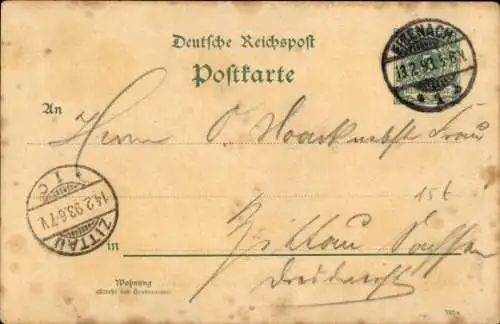 Deutsche Reichspost
Postkarte
EISENACH
13.2.93.5-6N.
An
Herrn O. nebst Frau
ZITTAU
14.2.93.6-7V.
15t
in
Zittau Sachsen
Wohnung
(Straße und Hausnummer)